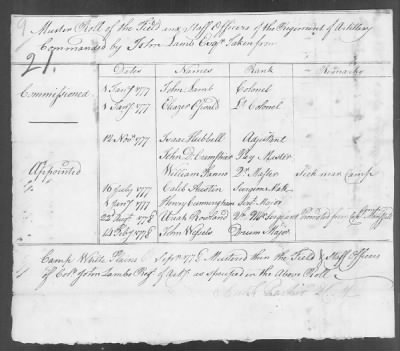 9
Muster Roll of the Field and Staff Officers of the Regiment of Artillery
Commanded by John Lamb Esqr. Taken from
21.
Dates Names Rank Remarks
Commissioned 1 Jany 1777 John Lamb Colonel
1 Jany 1777 Eliazer Oswald Lt Colonel
12 Novr 1777 Isaac Hubbell Adjutant
John D. Crimshier Pay Master
Appointed William Qr. Master Sick near Camp
16 July 1777 Caleb Surgeons Mate
1 Jany 1777 Henry Cunningham Serjt. Major
22 1778 Rowland Qr. Mr. Serjeant Promoted from
14 Feby 1778 John Drum Major
Camp White Plains Sepr. 1778 Mustered then the Field & Staff Officers
of Colo. John Lambs Regt of Arty as specified in the Above Roll